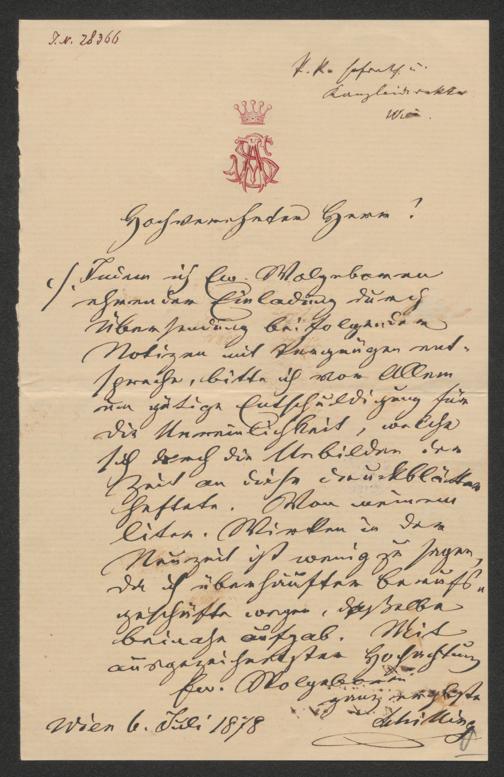 I.N. 28366
K. K. Hofrath u.
Kanzleidirektor
Wien.
Hochverehrter Herr!
Indem ich Ew. Wolgeboren
ehrender Einladung durch
Übersendung beifolgender
Notizen mit Vergnügen ent-
spreche, bitte ich vor Allem
um gütige Entschuldigung für
die Unreinlichkeit, welche
sich durch die Unbilden der
Zeit an diese Druckblätter
heftete. Von meinem
liter. Wirken in der
Neuzeit ist wenig zu sagen,
da ich überhäufter Berufs-
geschäfte wegen, dasselbe
beinahe aufgab. Mit
ausgezeichnetster Hochachtung
Ew. Wolgeboren
ganz ergebenster
Schilling
Wien 6. Juli 1878